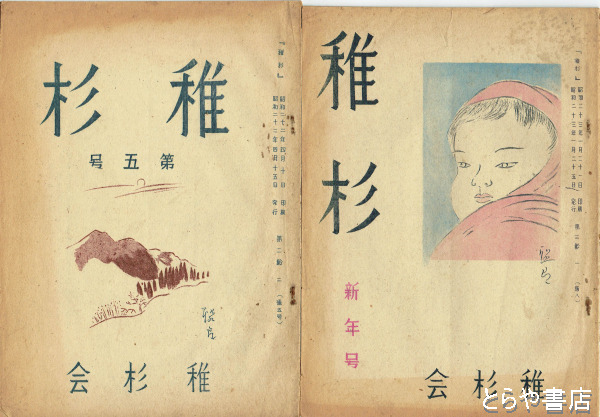 稚杉
第五号
稚杉会
「稚杉」
昭和二十二年四月十日 印刷
昭和二十二年四月十五日 発行
稚杉
新年号
稚杉会
「稚杉」
昭和二十三年一月二十一日 印刷
昭和二十三年一月二十五日 発行
とらや書店